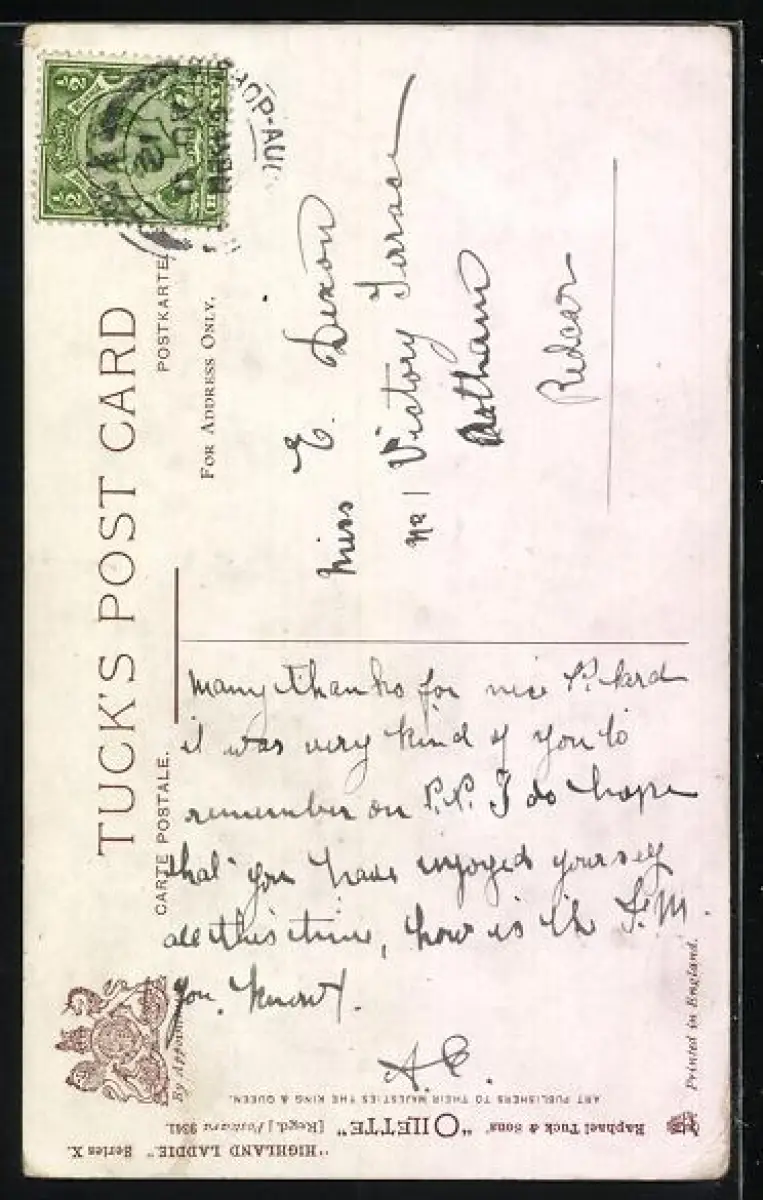 ½
½
HOP-AUC
AU
12
TUCK'S POST CARD
CARTE POSTALE.
POSTKARTE
FOR ADDRESS ONLY.
Miss E. Dixon
No 1 Victory Terrace
Redcar
Many thanks for nice P. Card
it was very kind of you to
remember on P.P. I do hope
that you have enjoyed yourself
all this time, how is the F.M.
you know.
By Appoin
ART PUBLISHERS TO THEIR MAJESTIES THE KING & QUEEN.
Raphael Tuck & Sons' "OILETTE" [Regd.] Postcard 9341.
"HIGHLAND LADDIE." Series X.
Printed in England.